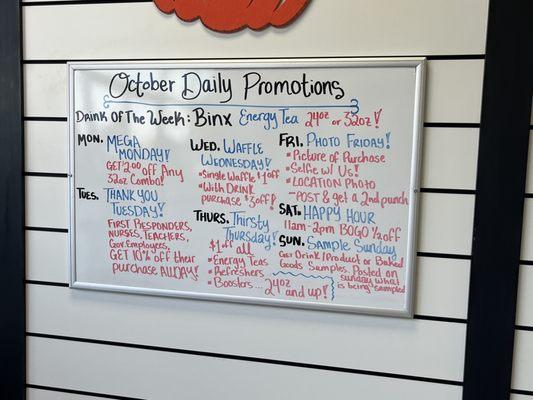 October Daily Promotions
Drink Of The Week: Binx Energy Tea 24oz or 32oz!
Mon. Mega
Monday!
Get $2.00 off Any
32oz Combo!
Tues. Thank You
Tuesday!
First Responders,
Nurses, Teachers,
Gov. Employees,
Get 10% off Their
purchase All Day!
Wed. Waffle
Wednesday!
• Single Waffle $1 off
• With Drink
purchase $3 off!
Thurs. Thirsty
Thursday!
$1 off all
• Energy Teas
• Refreshers
• Boosters... 24oz
and up!
Fri. Photo Friday!
• Picture of Purchase
• Selfie w/ Us!
• Location Photo
- Post & get a 2nd punch
Sat. Happy Hour
11am-2pm BOGO 1/2 off
Sun. Sample Sunday
Get Drink/Product or Baked
Goods Samples. Posted on
Sunday what
is being sampled